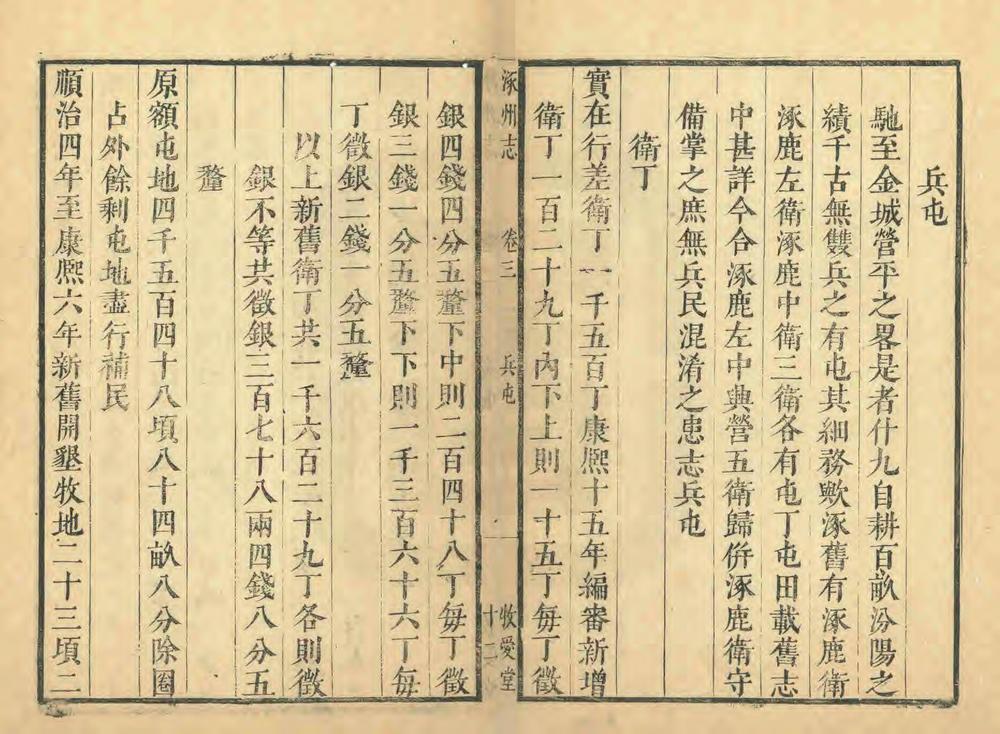 兵屯
馳至金城營平之畧是者什九自耕百畝汾陽之
績千古無雙兵之有屯其細務歟涿舊有涿鹿衛
涿鹿左衛涿鹿中衛三衛各有屯丁屯田載舊志
中甚詳今合涿鹿左中與營五衛歸併涿鹿衛守
備掌之庶無兵民混淆之患志兵屯
衛丁
實在行差衛丁一千五百丁康熙十五年編審新增
衛丁一百二十九丁內下上則一十五丁每丁徵
涿州志
卷三
兵屯
十二
牧愛堂
銀四錢四分五釐下中則二百四十八丁每丁徵
銀三錢一分五釐下下則一千三百六十六丁每
丁徵銀二錢一分五釐
以上新舊衛丁共一千六百二十九丁各則徵
銀不等共徵銀三百七十八兩四錢八分五
釐
原額屯地四千五百四十八頃八十四畝八分除圈
占外餘剩屯地盡行補民
順治四年至康熙六年新舊開墾牧地二十三頃二